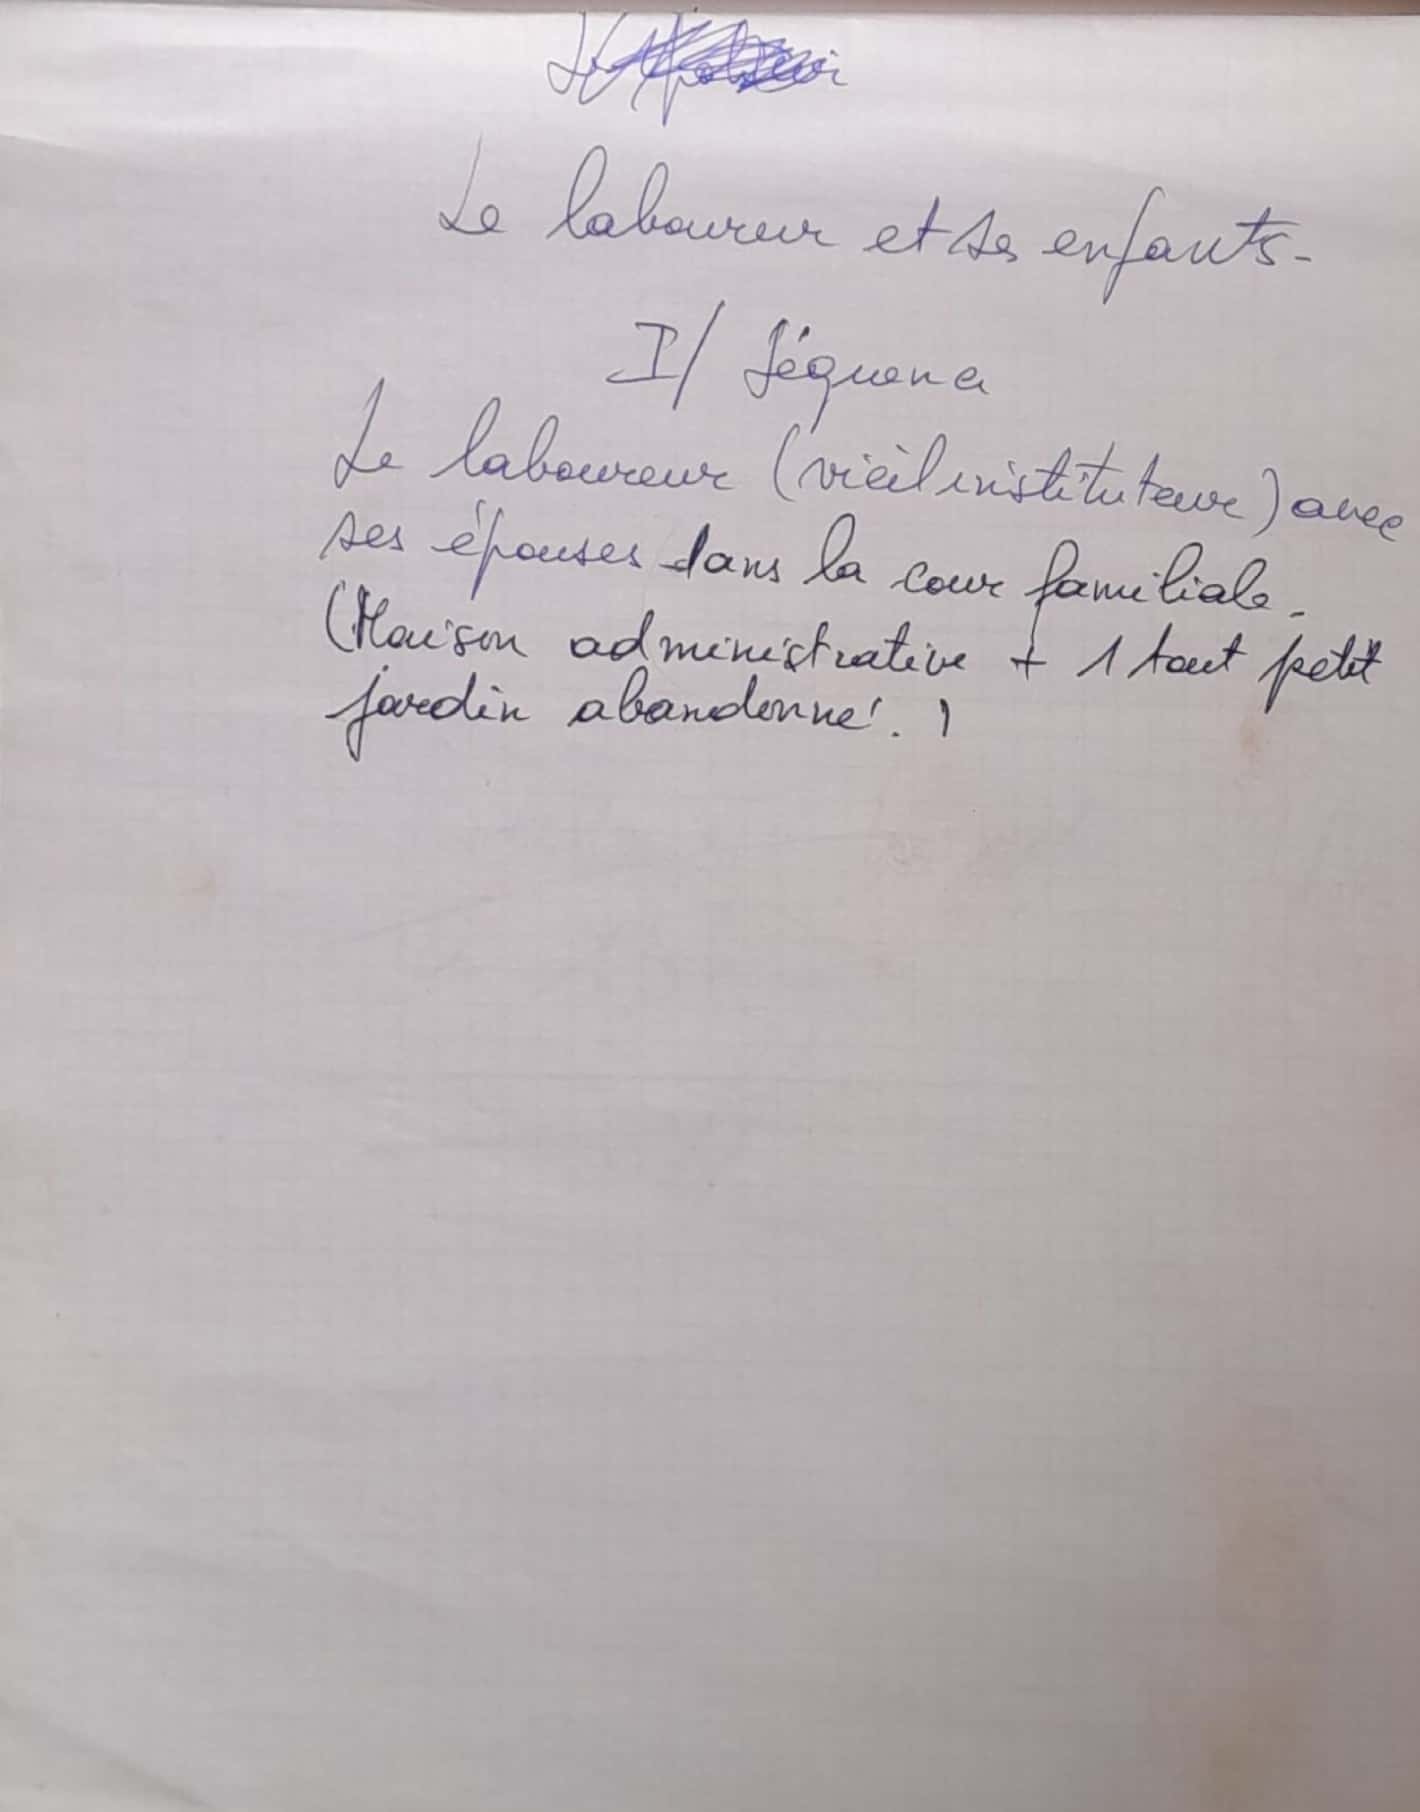 Le laboureur et ses enfants-
I/ Séquence
Le laboureur (vieil instituteur) avec
ses épouses dans la cour familiale.
(Maison administrative + 1 tout petit
jardin abandonné.)